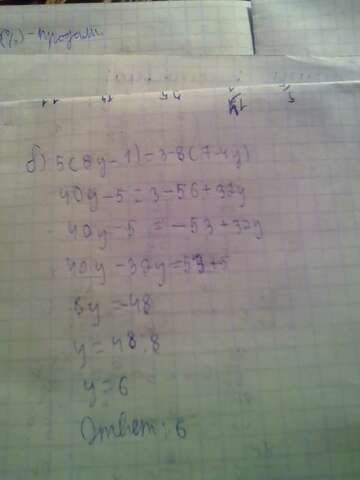 (%) - продали.
б) 5(8y-1)=3-8(7-4y)
40y-5=3-56+32y
40y-5=-53+32y
40y-32y=53+5
8y=-48
y=48:8
y=6
Ответ: 6